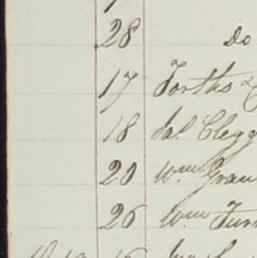 28 Do
17 Forths &
18 Jas. Clegg
20 Wm Gran
26 Wm Turn